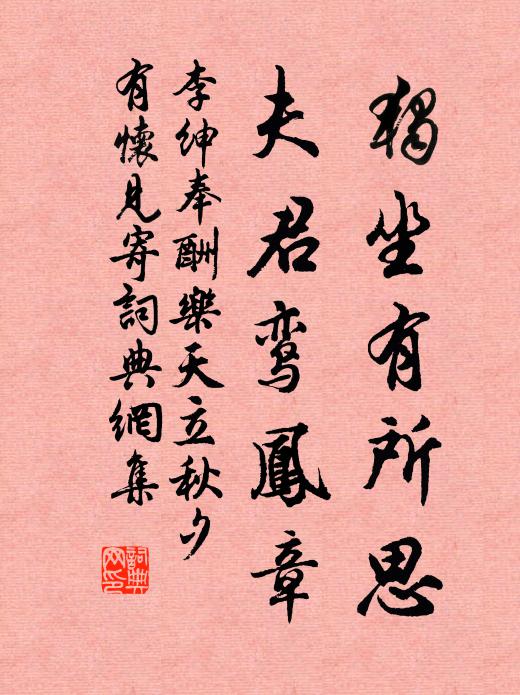 獨坐有所思
夫君鸾鳳章
李紳奉酬樂天立秋夕
有懷見寄詞典網集
詞典
网印